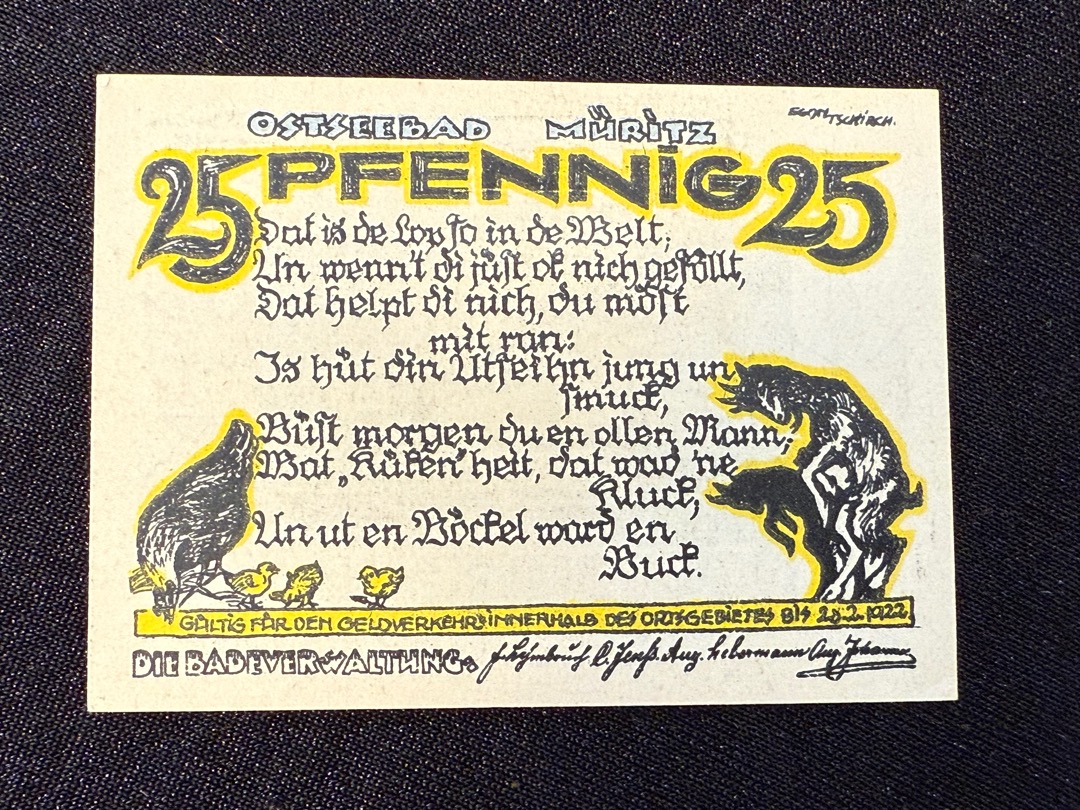 OSTSEEBAD MÜRITZ
EGON TSCHIRCH.
25 PFENNIG 25
Dat is de Lop so in de Welt,
Un wenn't di jüst ok nich geföllt,
Dat helpt di nich, du möst
mit ran:
Is hüt din Utseihn jung un
smuck,
Büst morgen du en ollen Mann,
Wat „Küken" heit, dat wad 'ne
Kluck,
Un ut en Böckel ward en
Buck.
GÜLTIG FÜR DEN GELDVERKEHR INNERHALB DES ORTSGEBIETES BIS 28.2.1922
DIE BADEVERWALTUNG: Aug.